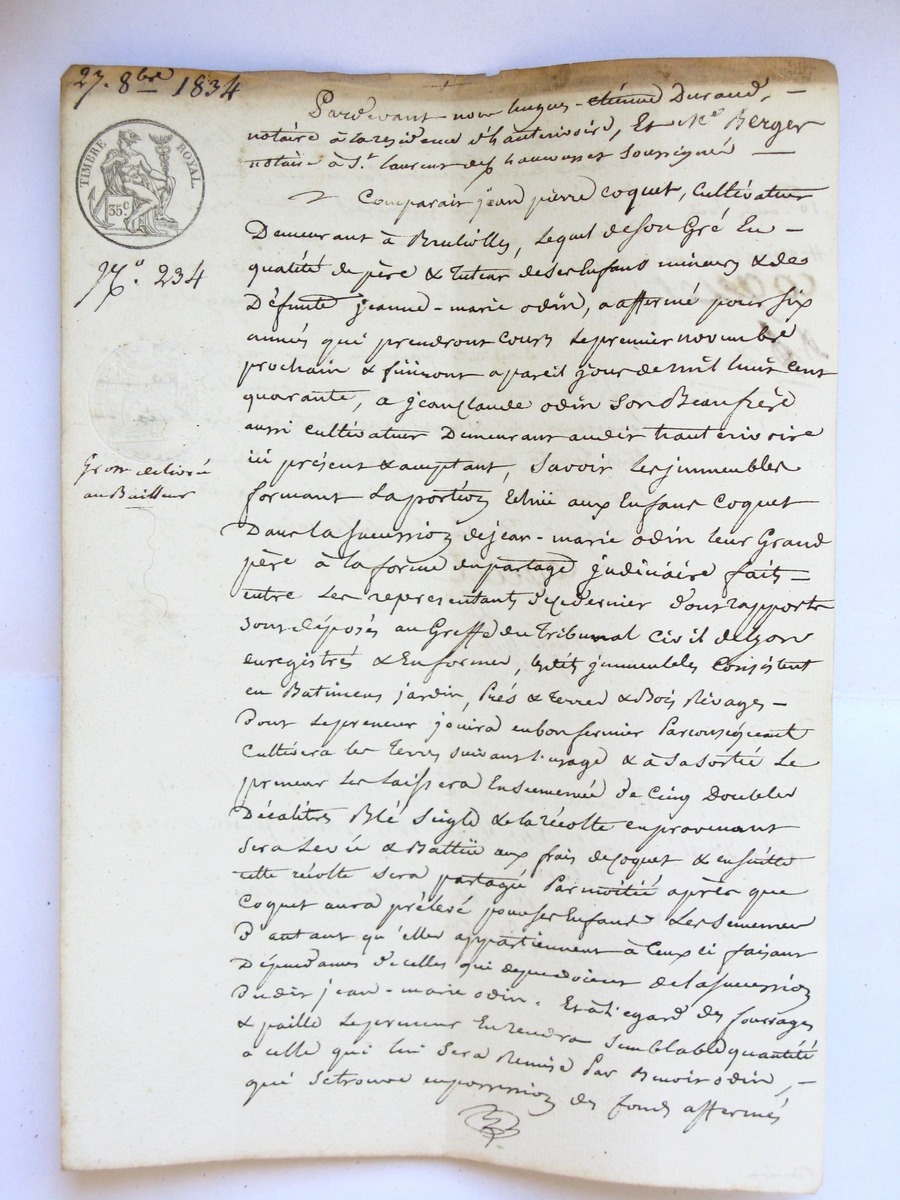 27. 8bre 1834
TIMBRE ROYAL
35 c
No. 234
Grosse delivrée
au Bailleur
Pardevant nous hugues-étienne Durand, —
notaire à la residence d'hauterivoire, Et Me Berger
notaire à St. laurent de Chamousset soussignés —
Comparait jean pierre Coquet, Cultivateur
Demeurant à Bruliolles, lequel de son Gré En —
qualité de père & tuteur de ses Enfans mineurs & de
Défunte jeanne-marie odin, a affermé pour six
années qui prendront cours le premier novembre
prochain & finiront a pareil jour de mil huit cent
quarante, a jean claude odin son Beau frère
aussi cultivateur Demeurant audit hauterivoire
ici présent & acceptant, Savoir les immeubles
formant la portion Echue aux Enfans Coquet
Dans la succession de jean-marie odin leur Grand
père à la forme du partage judiciaire fait —
entre les representants de ce dernier dont rapports
sont déposés au Greffe du tribunal Civil de Lyon
enregistrés & En formes, lesdits immeubles Consistent
en Batimens jardin, Prés & terres & Bois Rivages —
Dont le preneur jouira en bon fermier Par conséquent
Cultivera les terres suivant l'usage & à sa sortie Le
preneur les laissera Ensemencés de Cinq Doubles
Décalitres Blé Seigle & la récolte en provenant
sera Levée & Battue aux frais de Coquet & ensuite
cette récolte sera partagée Par moitié après que
Coquet aura prélevé pour ses Enfans les semences
D'autant qu'elles appartiennent à Ceux ci faisant
Dépendances de celles qui dependoient de la succession
Dudit jean-marie odin. Et à l'egard des fourrages
& paille le preneur En rendra semblable quantité
a celle qui lui sera Remise Par Benoit odin, —
qui se trouve en possession des fonds affermés